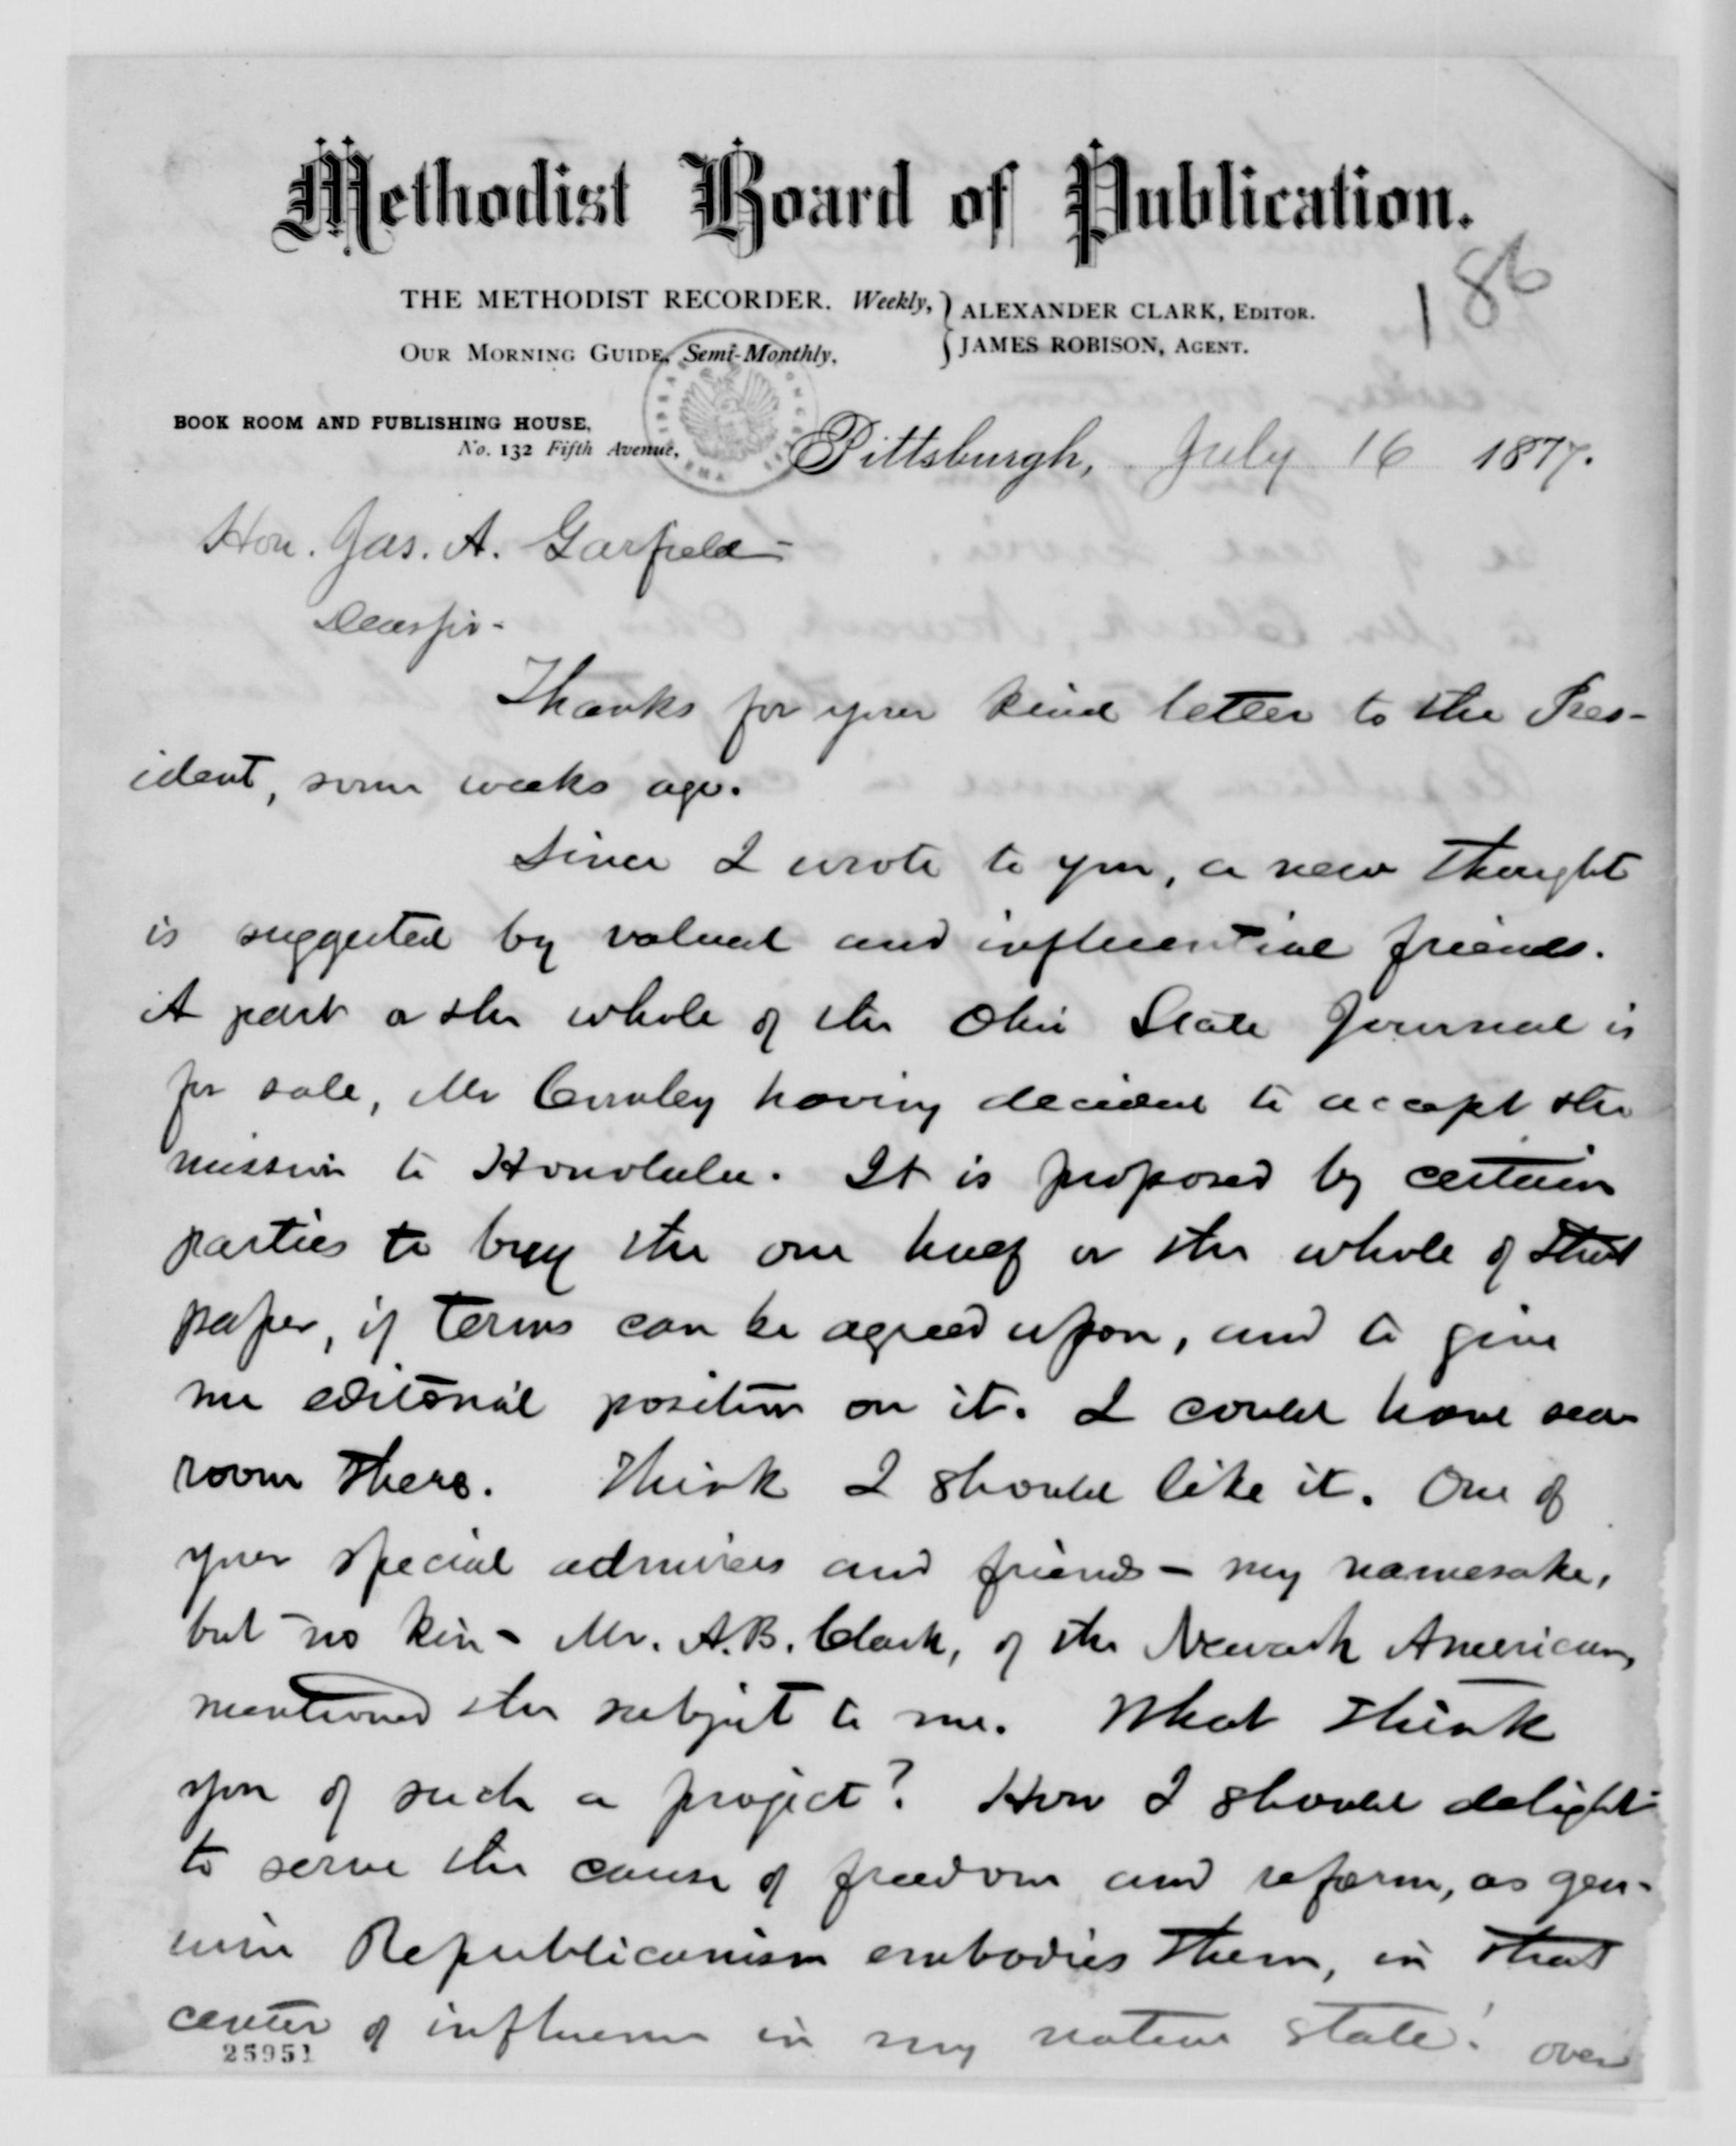 Methodist Board of Publication.
186
THE METHODIST RECORDER. Weekly, } ALEXANDER CLARK, EDITOR.
OUR MORNING GUIDE, Semi-Monthly. { JAMES ROBISON, AGENT.
BOOK ROOM AND PUBLISHING HOUSE,
No. 132 Fifth Avenue,
Pittsburgh, July 16 1877.
Hon. Jas. A. Garfield-
Dear Sir-
Thanks for your kind letter to the Pres-
ident, some weeks ago.
Since I wrote to you, a new thought
is suggested by valued and influential friends.
A part or the whole of the Ohio State Journal is
for sale, Mr Comley having decided to accept the
mission to Honolulu. It is proposed by certain
parties to buy the one half or the whole of that
paper, if terms can be agreed upon, and to give
me editorial position on it. I could have sea
room there. Think I should like it. One of
your special admirers and friends - my namesake,
but no kin - Mr. A.B. Clark, of the Newark American,
mentioned the subject to me. What think
you of such a project? How I should delight
to serve the cause of freedom and reform, as gen-
uine Republicanism embodies them, in that
center of influence in my native state! over
25951